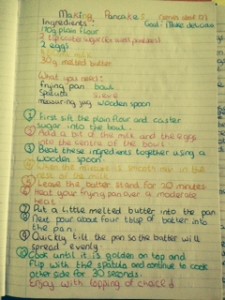 Making Pancakes
Ingredients:
110g plain flour
2 eggs
30g melted butter
What you need:
frying pan bowl
spatula sieve
measuring jug wooden spoon
1 First sift the plain flour and caster
sugar into the bowl.
2 Add a bit of the milk and the eggs
into the centre of the bowl
3 Beat these ingredients together using a
wooden spoon
rest of the milk
5 Leave this batter stand for 20 minutes
Heat your frying pan over a moderate
heat.
Put a little melted butter into the pan
Next pour about four tbsp of batter into
the pan
Quickly tilt the pan so the batter will
spread evenly.
Cook until it is golden on top and
flip with the spatula and continue to cook
other side for 30 seconds.
Enjoy with topping of choice!